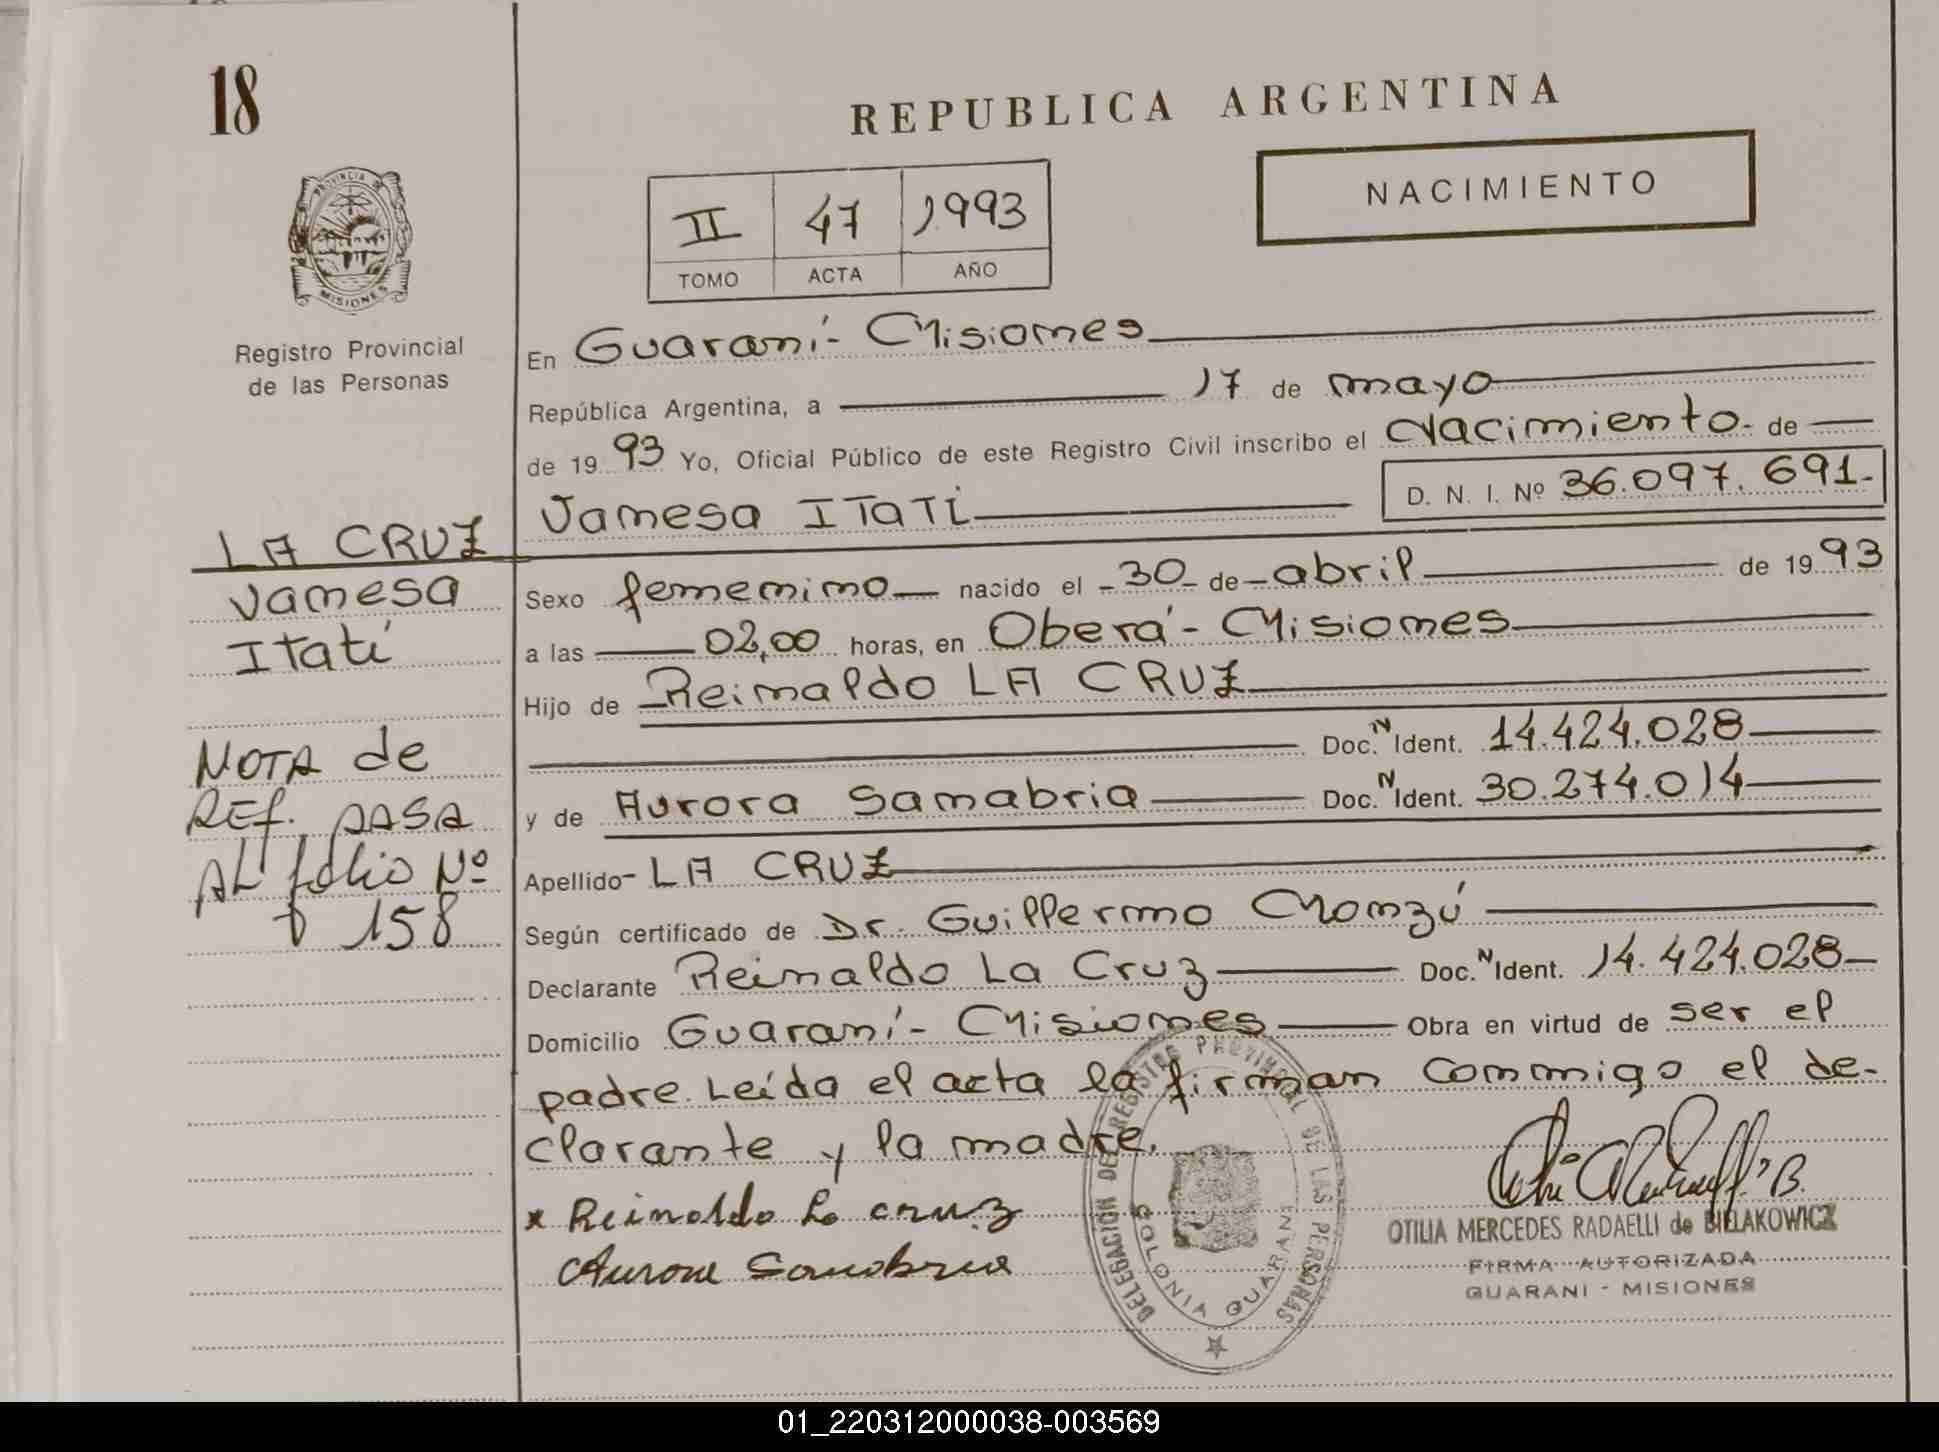 18
REPUBLICA ARGENTINA
PROVINCIA DE
MISIONES
Registro Provincial
de las Personas
II 47 1993
TOMO ACTA AÑO
NACIMIENTO
En Guaraní- Misiones
República Argentina, a 17 de mayo
de 19 93 Yo, Oficial Público de este Registro Civil inscribo el Nacimiento- de
Vanesa ITATI D. N. I. Nº 36.097.691.-
LA CRUZ
Vanesa
Itatí
Sexo femenino nacido el -30- de - abril de 19 93
a las 02,00 horas, en Oberá - Misiones
Hijo de Reinaldo LA CRUZ
Doc. N Ident. 14.424.028
y de Aurora Sanabria Doc. N Ident. 30.274.014
Apellido- LA CRUZ
Según certificado de Dr. Guillermo Monzú
Declarante Reinaldo La Cruz Doc. N Ident. 14.424.028
Domicilio Guaraní- Misiones Obra en virtud de ser el
padre. Leída el acta la firman conmigo el de-
clarante y la madre.
NOTA de
REf. PASA
AL folio Nº
158
x Reinaldo La cruz
Aurora Sanabria
DELEGACION DEL REGISTRO PROVINCIAL DE LAS PERSONAS
COLONIA GUARANI
OTILIA MERCEDES RADAELLI de BIELAKOWICZ
FIRMA AUTORIZADA
GUARANI - MISIONES
01_220312000038-003569